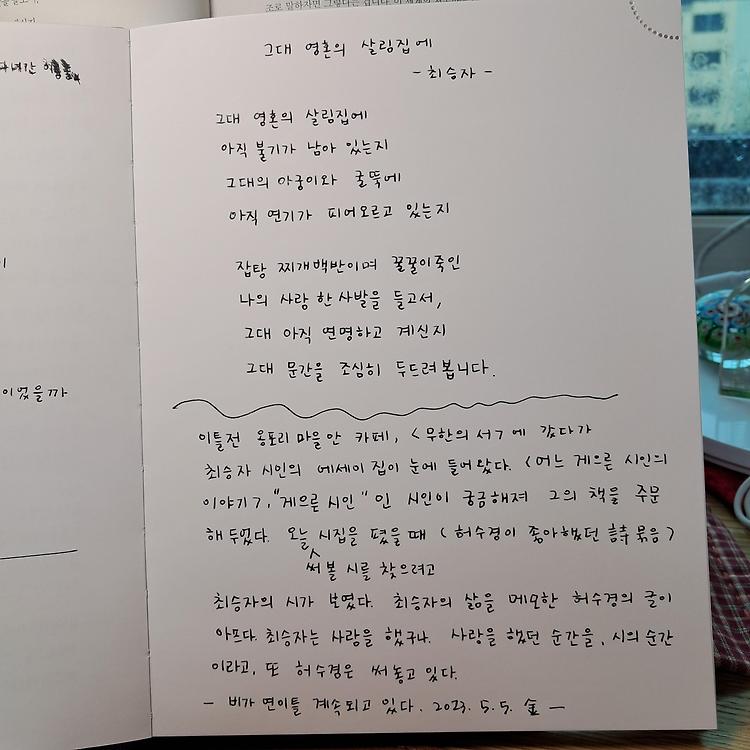 조로 말하자면 그렇다는 겁니다. 이 세계의
그대 영혼의 살림집에
- 최승자 -
그대 영혼의 살림집에
아직 불기가 남아 있는지
그대의 아궁이와 굴뚝에
아직 연기가 피어오르고 있는지
잡탕 찌개백반이며 꿀꿀이죽인
나의 사랑 한 사발을 들고서,
그대 아직 연명하고 계신지
그대 문간을 조심히 두드려봅니다.
이었을까
이틀전 옹포리 마을 안 카페, <무한의 서>에 갔다가
최승자 시인의 에세이집이 눈에 들어왔다. <어느 게으른 시인의
이야기>, "게으른 시인" 인 시인이 궁금해져 그의 책을 주문
해 두었다. 오늘 시집을 폈을 때 <허수경이 좋아했던 詩 묶음>
써 볼 시를 찾으려고
최승자의 시가 보였다. 최승자의 삶을 메모한 허수경의 글이
아프다. 최승자는 사랑을 했구나. 사랑을 했던 순간을, 시의 순간
이라고, 또 허수경은 써 놓고 있다.
- 비가 연이틀 계속되고 있다. 2023. 5. 5. 金 -